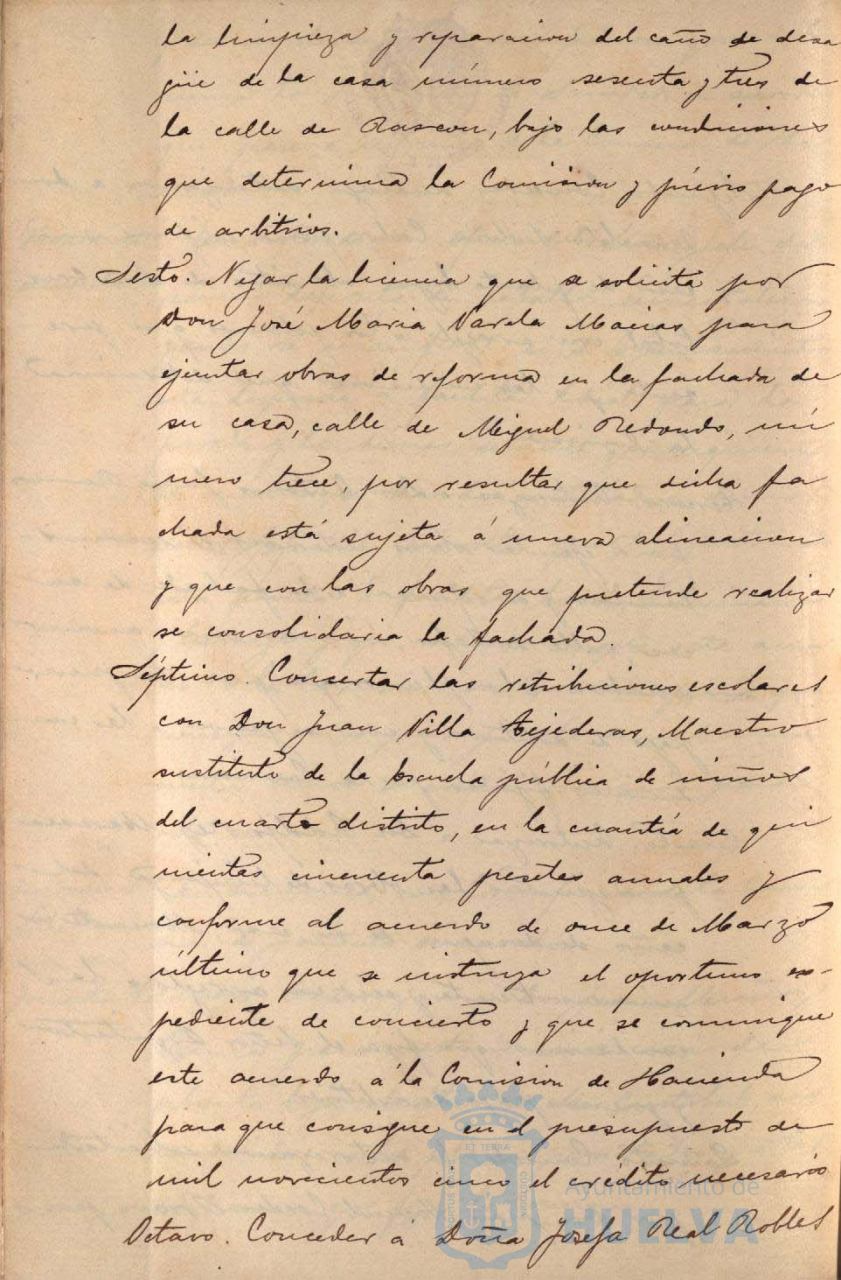 la limpieza y reparacion del caño de desa
güe de la casa número sesenta y tres de
la calle de Rascon, bajo las condiciones
que determina la Comision y prévio pago
de arbitrios.
Sesto. Negar la licencia que se solicita por
Don José Maria Varela Macias para
ejecutar obras de reforma en la fachada de
su casa, calle de Miguel Redondo, nú
mero trece, por resultar que dicha fa
chada está sujeta á nueva alineacion
y que con las obras que pretende realizar
se consolidaria la fachada.
Séptimo. Concertar las retribuciones escolares
con Don Juan Villa Tejederas, Maestro
sustituto de la Escuela pública de niños
del cuarto distrito, en la cuantía de qui
nientas cincuenta pesetas anuales y
conforme al acuerdo de once de Marzo
último que se instruya el oportuno ex-
pediente de concierto y que se comunique
este acuerdo á la Comision de Hacienda
para que consigne en el presupuesto de
mil novecientos cinco el crédito necesario
Octavo. Conceder á Doña Josefa Real Robles
ET TERRA
Ayuntamiento de
HUELVA